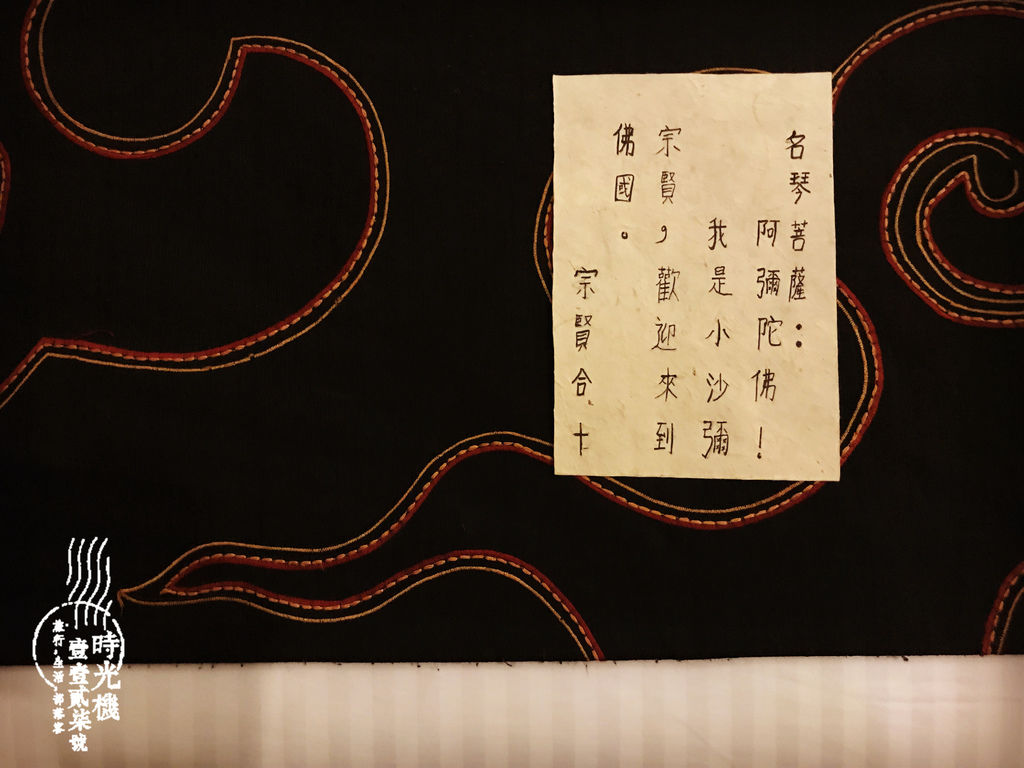 名琴菩薩：
阿彌陀佛！
我是小沙彌
宗賢，歡迎來到
佛國。
宗賢合十
時光機
壹壹貳柒號
旅行·生活·部落客